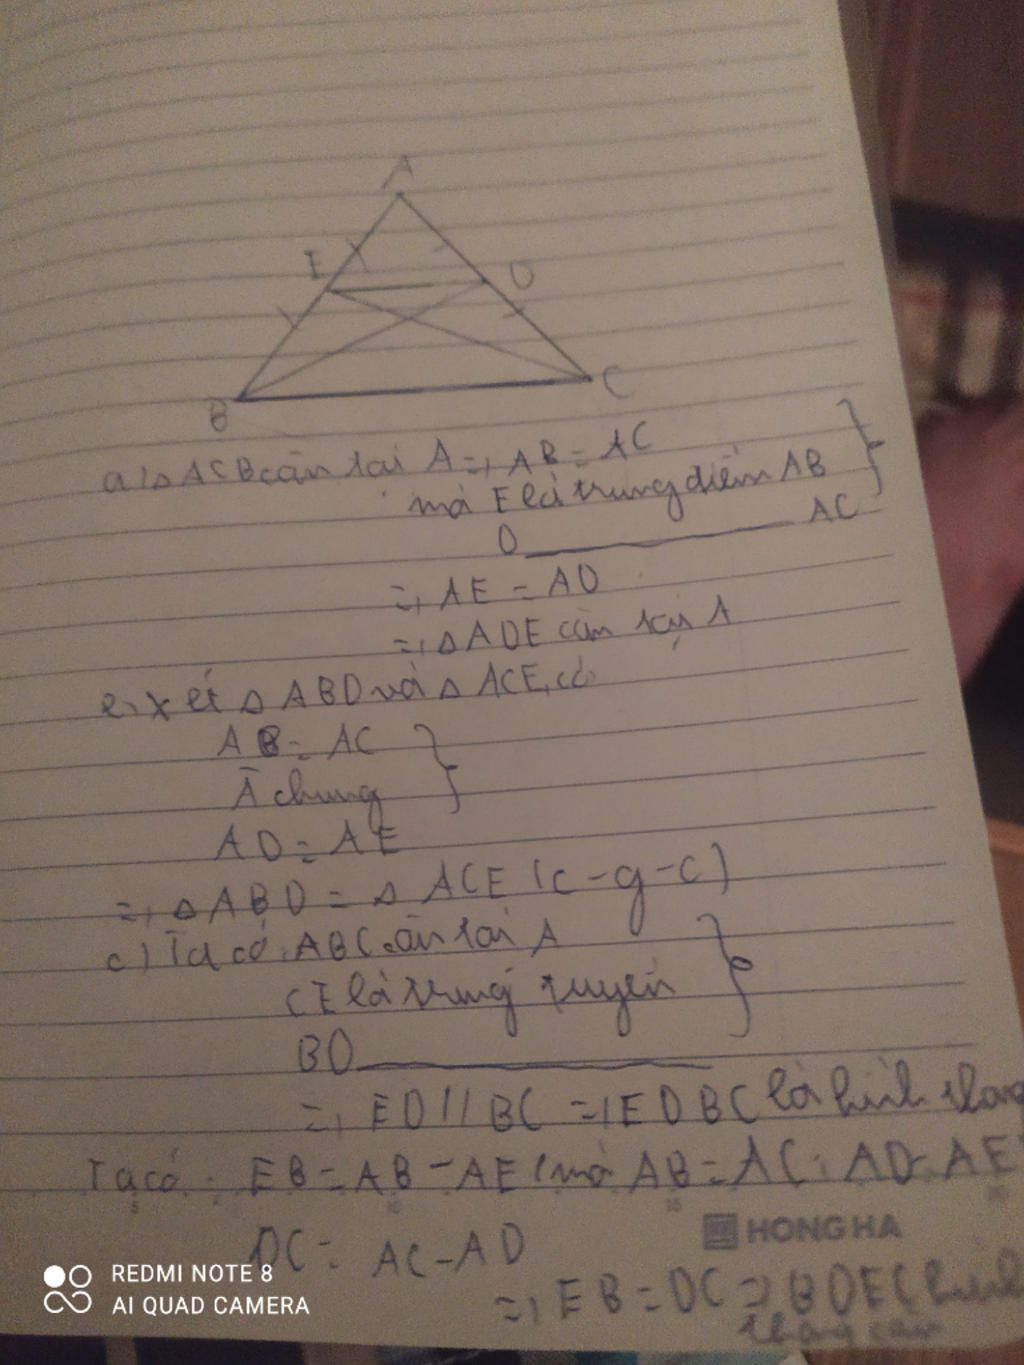 A
E
D
B
C
a) △ACB cân tại A => AB = AC
mà E là trung điểm AB
D ———— AC
=> AE = AD
=> △ADE cân tại A
b, xét △ABD và △ACE, có
AB = AC
 chung
AD = AE
=> △ABD = △ACE (c-g-c)
c) Ta có: ABC cân tại A
CE là trung tuyến
BD ————
=> ED // BC => EDBC là hình thang
Ta có: EB = AB - AE (mà AB = AC; AD = AE
DC = AC - AD
HONG HA
=> EB = DC => BDEC hình
thang cân
REDMI NOTE 8
AI QUAD CAMERA